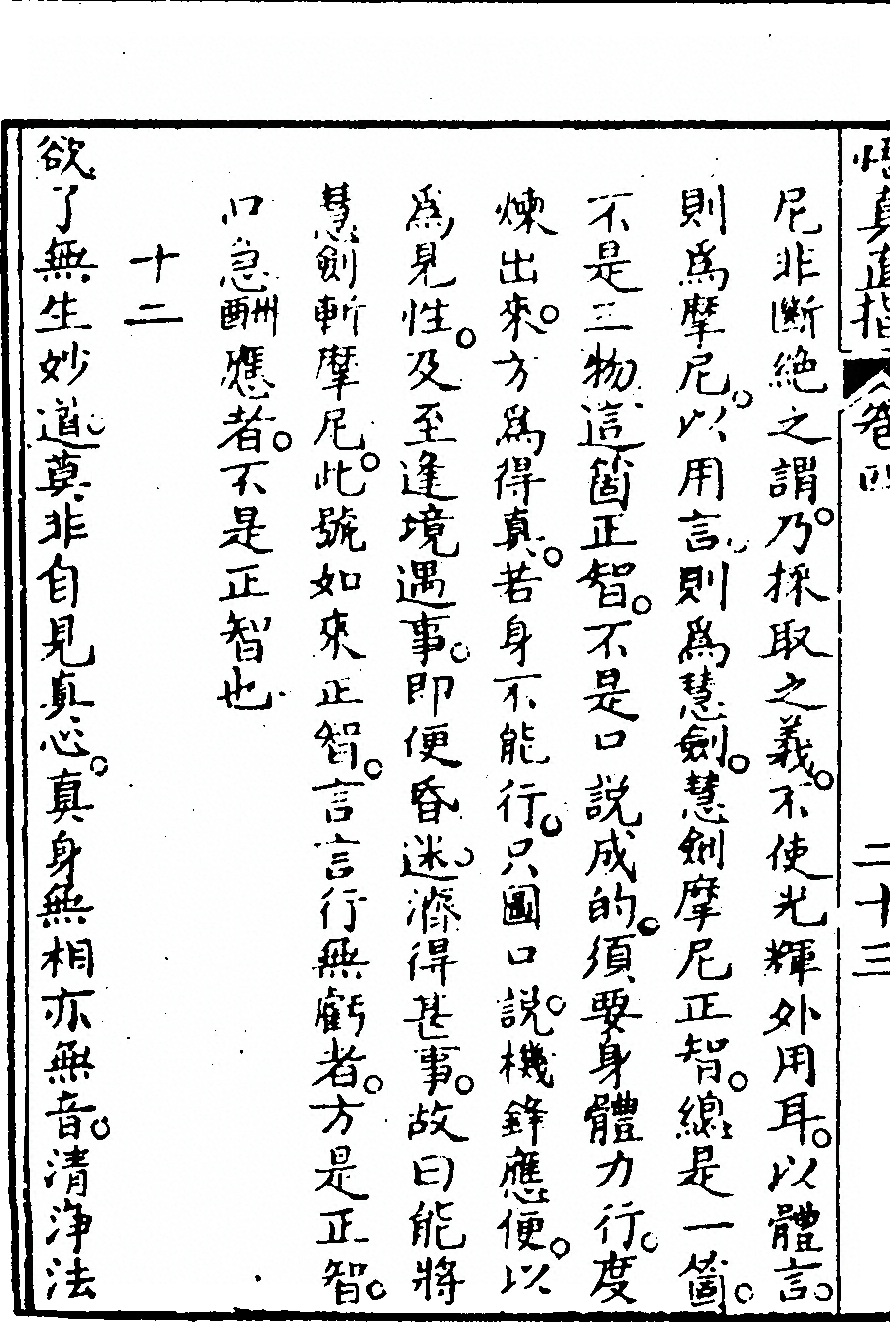 悟真直指 卷四 二十三
尼非斷絶之謂。乃採取之義。不使光輝外用耳。以體言。
則爲摩尼。以用言。則爲慧劍。慧劍摩尼正智。緫是一箇。
不是三物。這箇正智。不是口說成的。須要身體力行。度
煉出來。方爲得真。若身不能行。只圖口說。機鋒應便。以
爲見性。及至逢境遇事。即便昏迷。濟得甚事。故曰能將
慧劍斬摩尼。此號如來正智。言言行無虧者。方是正智。
口急酬應者。不是正智也
十二
欲了無生妙道。莫非自見真心。真身無相亦無音。清淨法